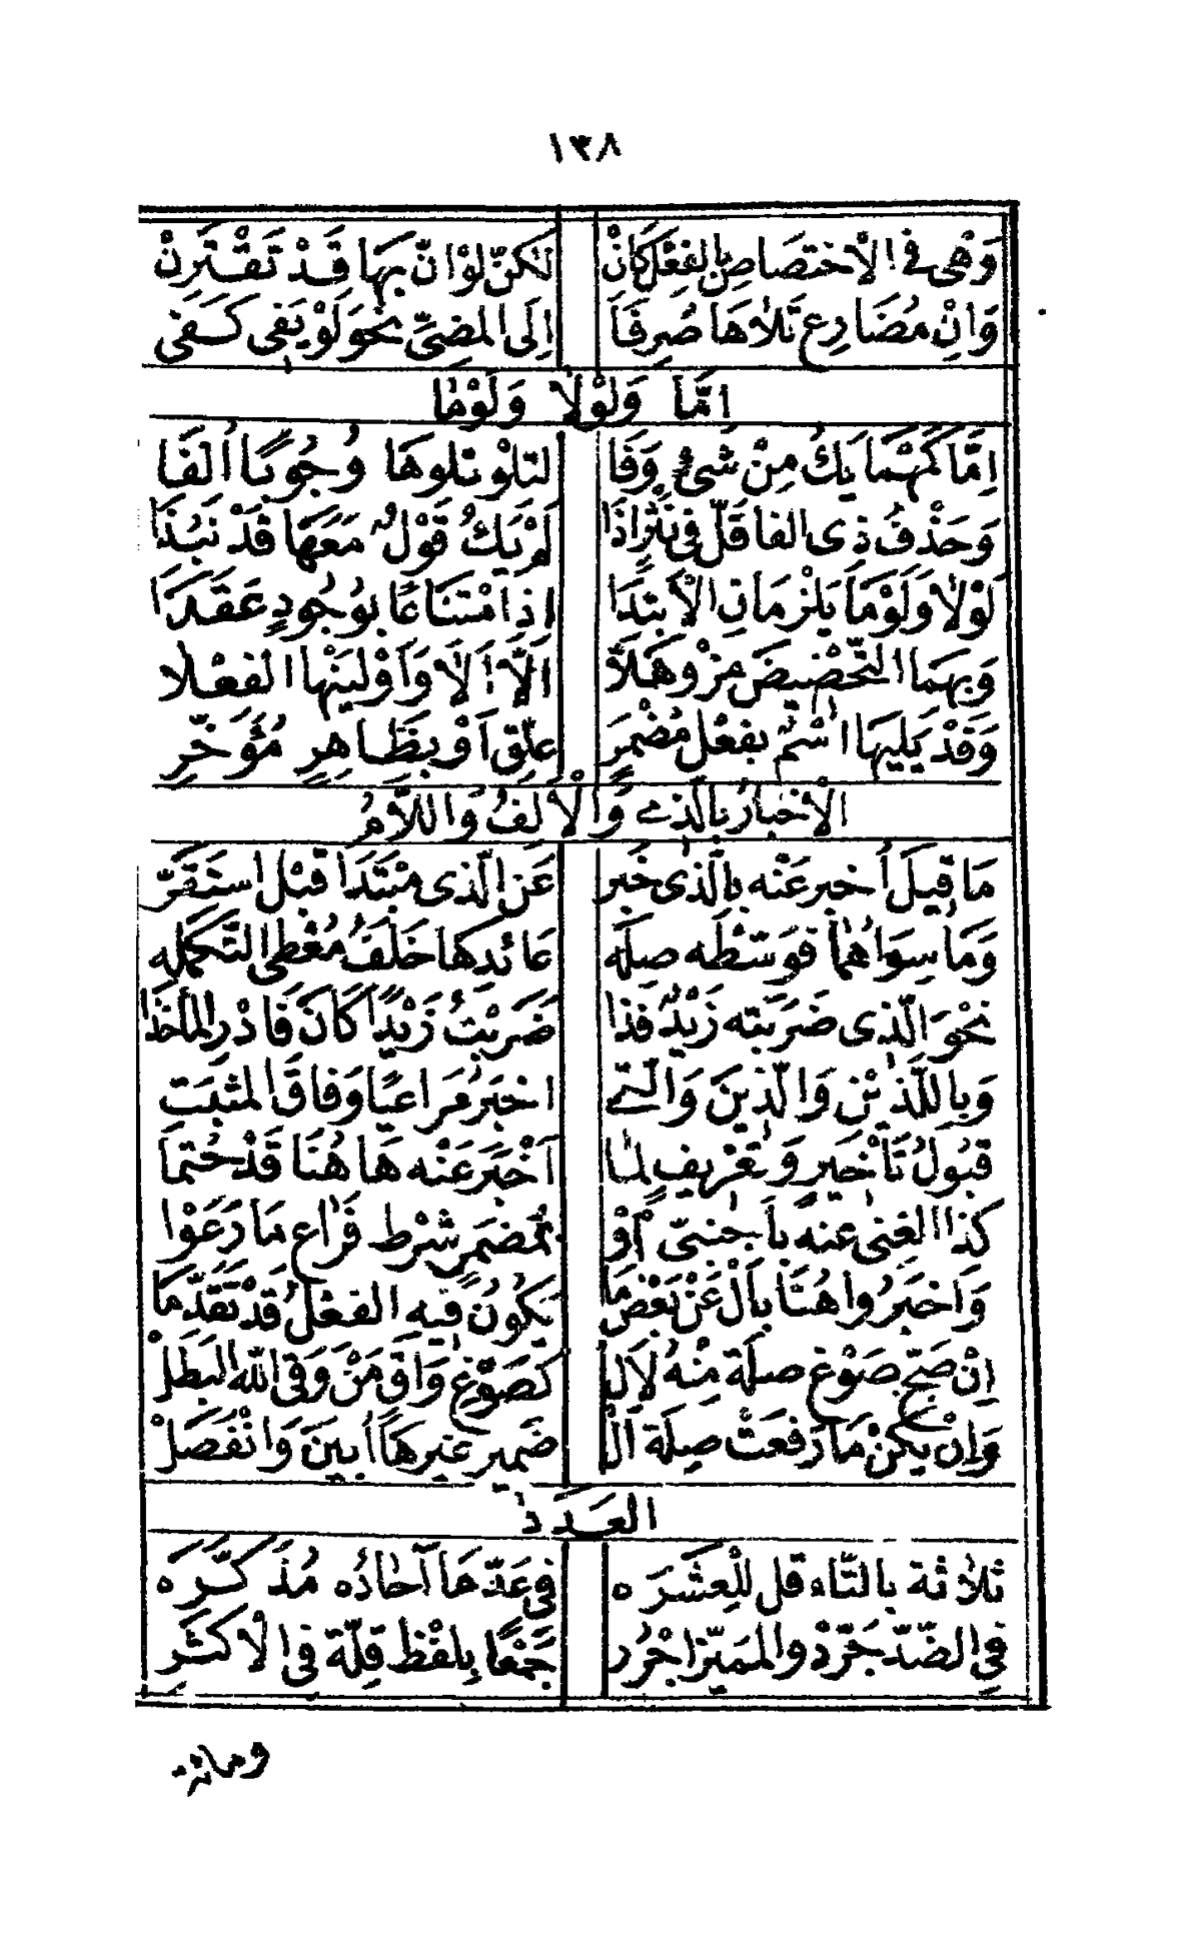 ١٣٨
وَهْىَ فِى الْاِخْتِصَاصِ بِالْفِعْلِ كَاِنْ لٰكِنَّ لَوْ اَنَّ بِهَا قَدْ تَقْتَرِنْ
وَاِنْ مُضَارِع تَلَاهَا صُرِفَا اِلَى الْمُضِىِّ نَحْوَ لَوْ يَفِى كَفَى
اَمَّا وَلَوْلَا وَلَوْمَا
اَمَّا كَمَهْمَا يَكُ مِنْ شَىْءٍ وَفَا لِتَلْوِ تِلْوِهَا وُجُوبًا اُلِفَا
وَحَذْفُ ذِى الفَا قَلَّ فِى نَثْرٍ اِذَا لَمْ يَكُ قَوْلٌ مَعَهَا قَدْ نُبِذَا
لَوْلَا وَلَوْمَا يَلْزَمَانِ الْاِبْتِدَا اِذَا امْتِنَاعًا بِوُجُودٍ عَقَدَا
وَبِهِمَا التَّحْضِيضَ مِزْ وَهَلَّا اَلَّا اَلَا وَاَوْلِيَنْهَا الْفِعْلَا
وَقَدْ يَلِيهَا اسْمٌ بِفِعْلٍ مُضْمَرِ عُلِّقَ اَوْ بِظَاهِرٍ مُؤَخَّرِ
الْاِخْبَارُ بِالَّذِى وَالْاَلِفُ وَاللَّامُ
مَا قِيلَ اَخْبِرْ عَنْهُ بِالَّذِى خَبَر عَنِ الَّذِى مُبْتَدَأ قَبْلُ اسْتَقَرّ
وَمَا سِوَاهُمَا فَوَسِّطْه صِلَه عَائِدُهَا خَلَفُ مُعْطِى التَّكْمِلَه
نَحْوَ الَّذِى ضَرَبْتُه زَيْدٌ فَذَا ضَرَبْتُ زَيْدًا كَانَ فَادْرِ الْمَأْخَذَا
وَبِاللَّذَيْنِ وَالَّذِينَ وَالَّتِى اَخْبِرْ مُرَاعِيًا وِفَاقَ الْمُثْبَتِ
قَبُولُ تَأْخِيرٍ وَتَعْرِيفٍ لِمَا اَخْبِرَ عَنْه هَا هُنَا قَدْ حُتِمَا
كَذَا الْغِنَى عَنْهُ بِاَجْنَبِىٍّ اَوْ بِمُضْمَرٍ شَرْط فَرَاعِ مَا رَعَوْا
وَاَخْبَرُوا هُنَا بِاَلْ عَنْ بَعْضِ مَا يَكُونُ فِيهِ الْفِعْلُ قَدْ تَقَدَّمَا
اِنْ صَحَّ صَوْغُ صِلَة مِنْهُ لِاَلْ كَصَوْغِ وَاقٍ مِنْ وَقَى اللّٰهُ الْبَطَلْ
وَاِنْ يَكُنْ مَا رَفَعَتْ صِلَة اَلْ ضَمِيرَ غَيْرِهَا اُبِينَ وَانْفَصَلْ
الْعَدَد
ثَلَاثَة بِالتَّاءِ قُل لِلْعَشَرَه فِى عَدِّ مَا آحَادُه مُذَكَّرَه
فِى الضِّدِّ جَرِّدْ وَالْمُمَيِّزَ اجْرُرِ جَمْعًا بِلَفْظِ قِلَّة فِى الْاَكْثَرِ
ومائة